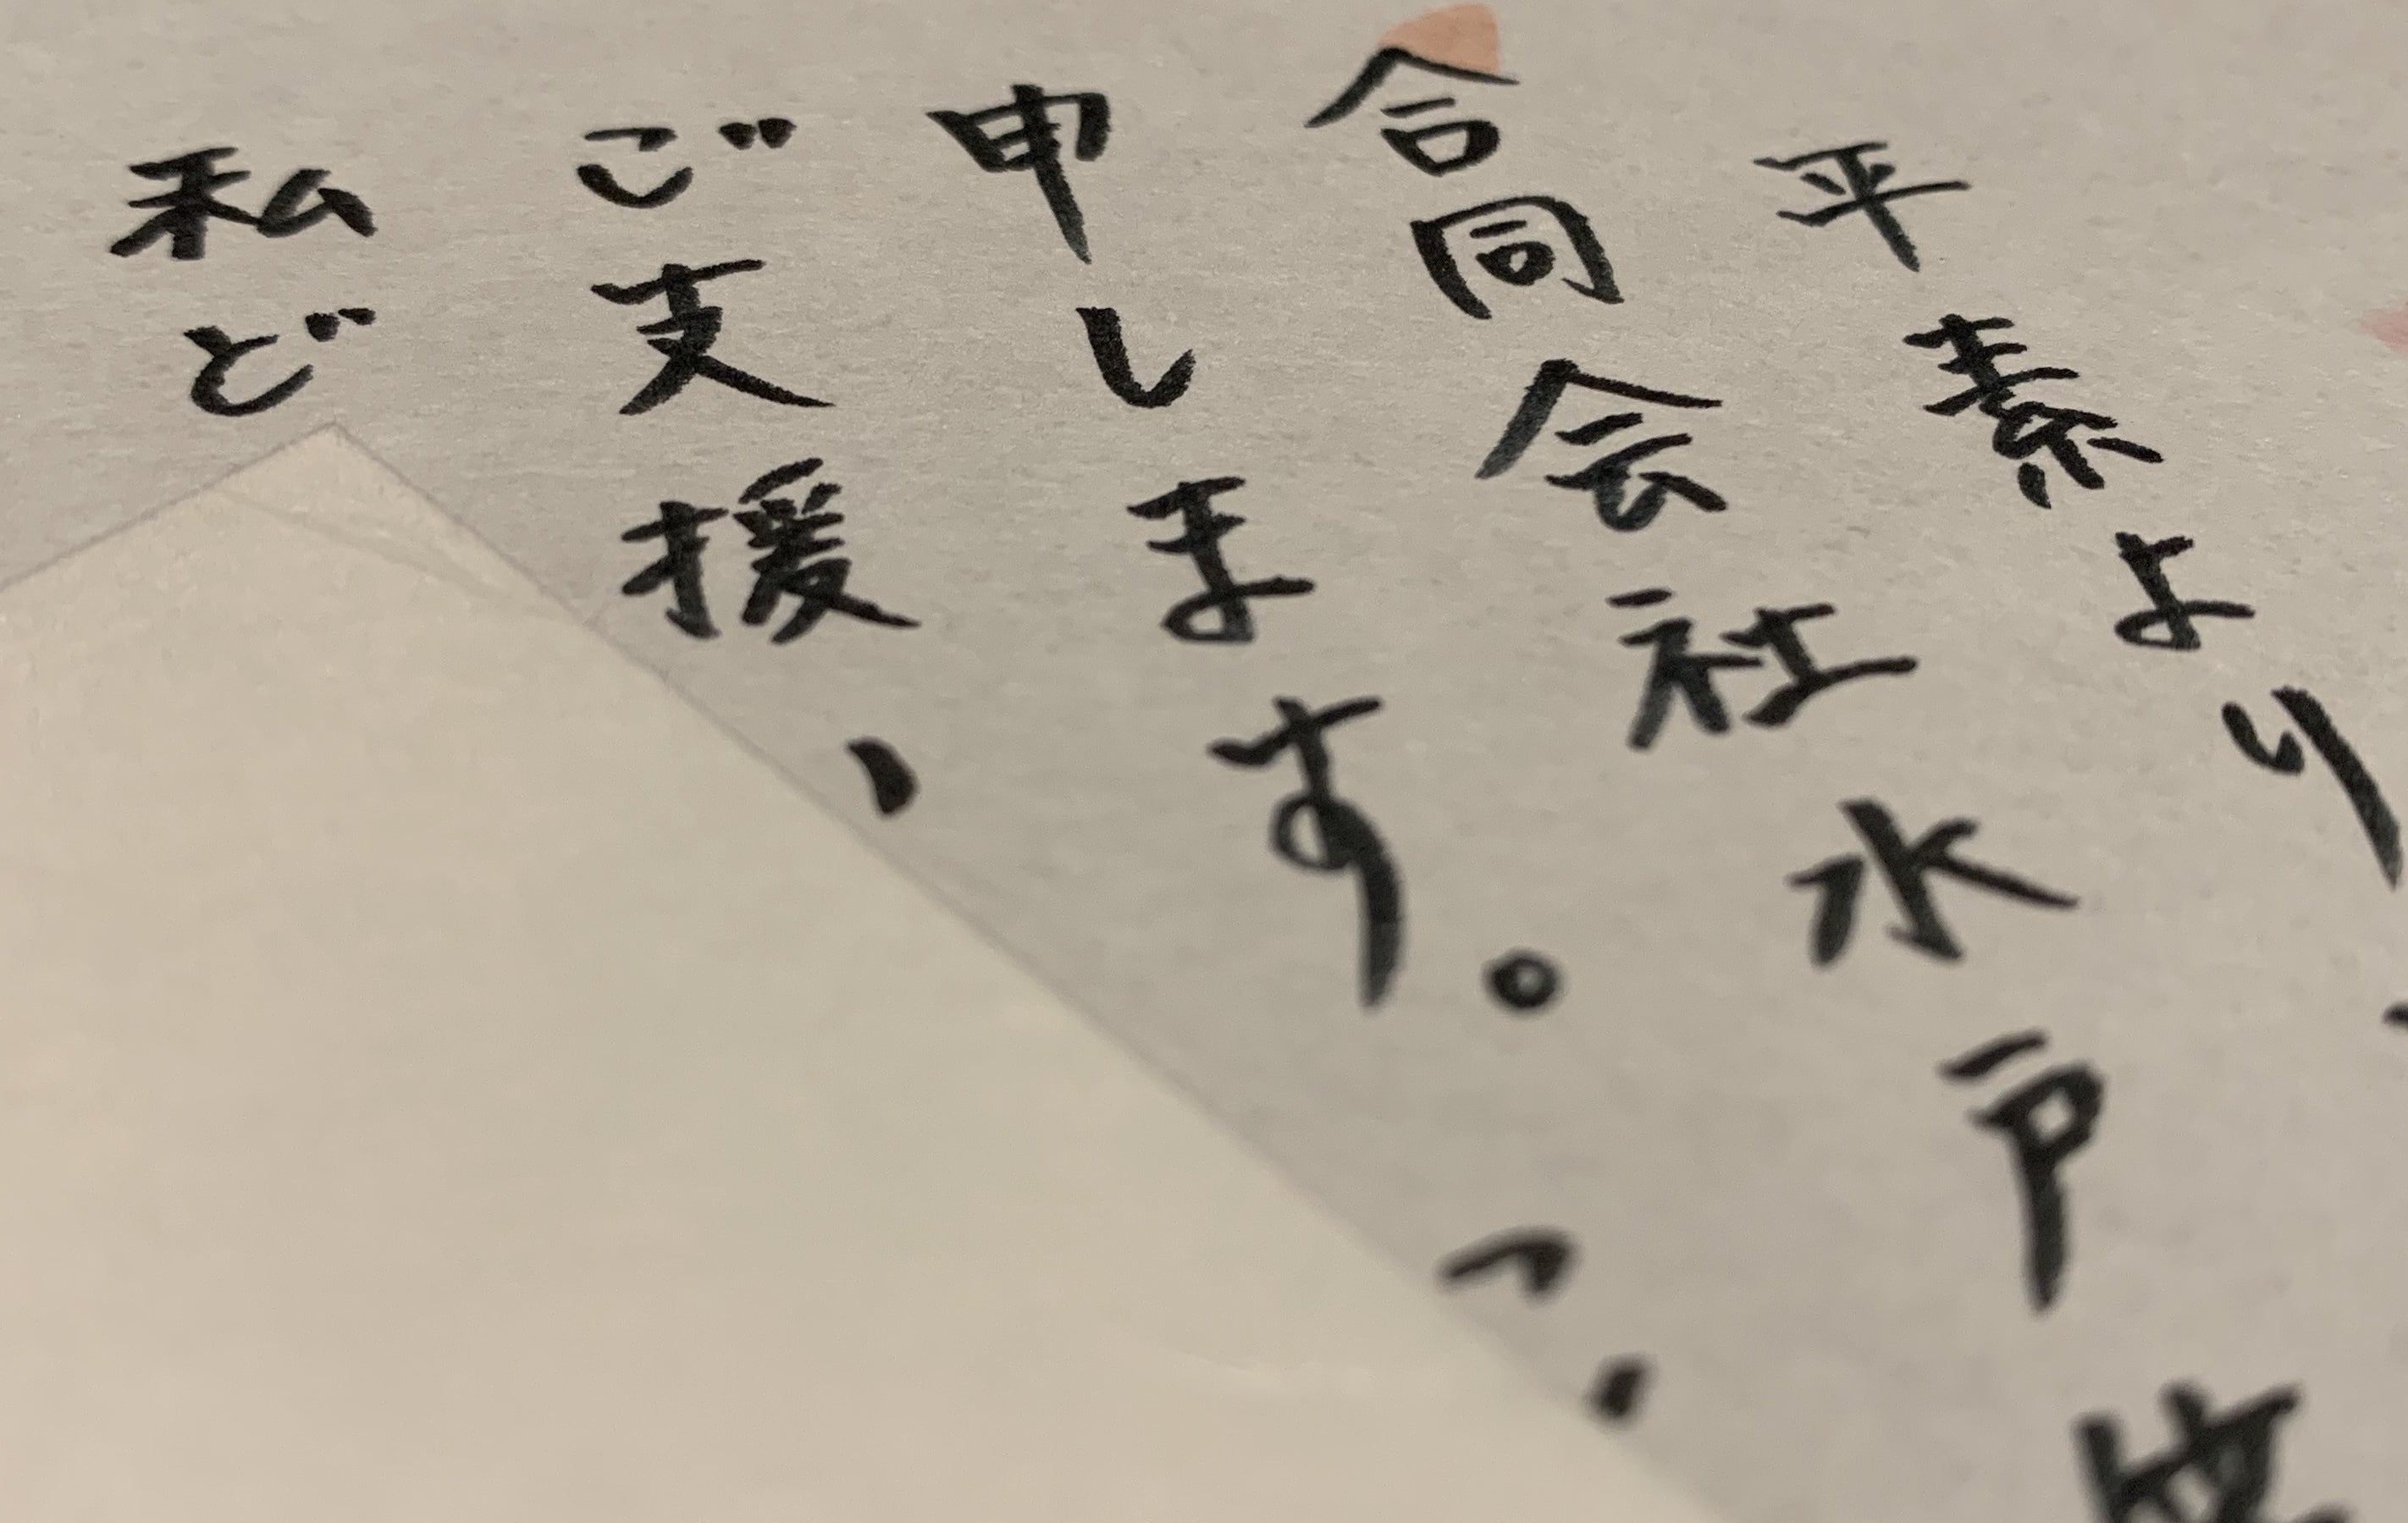 平素より
合同会社水戸
申します。
ご支援、
私ど